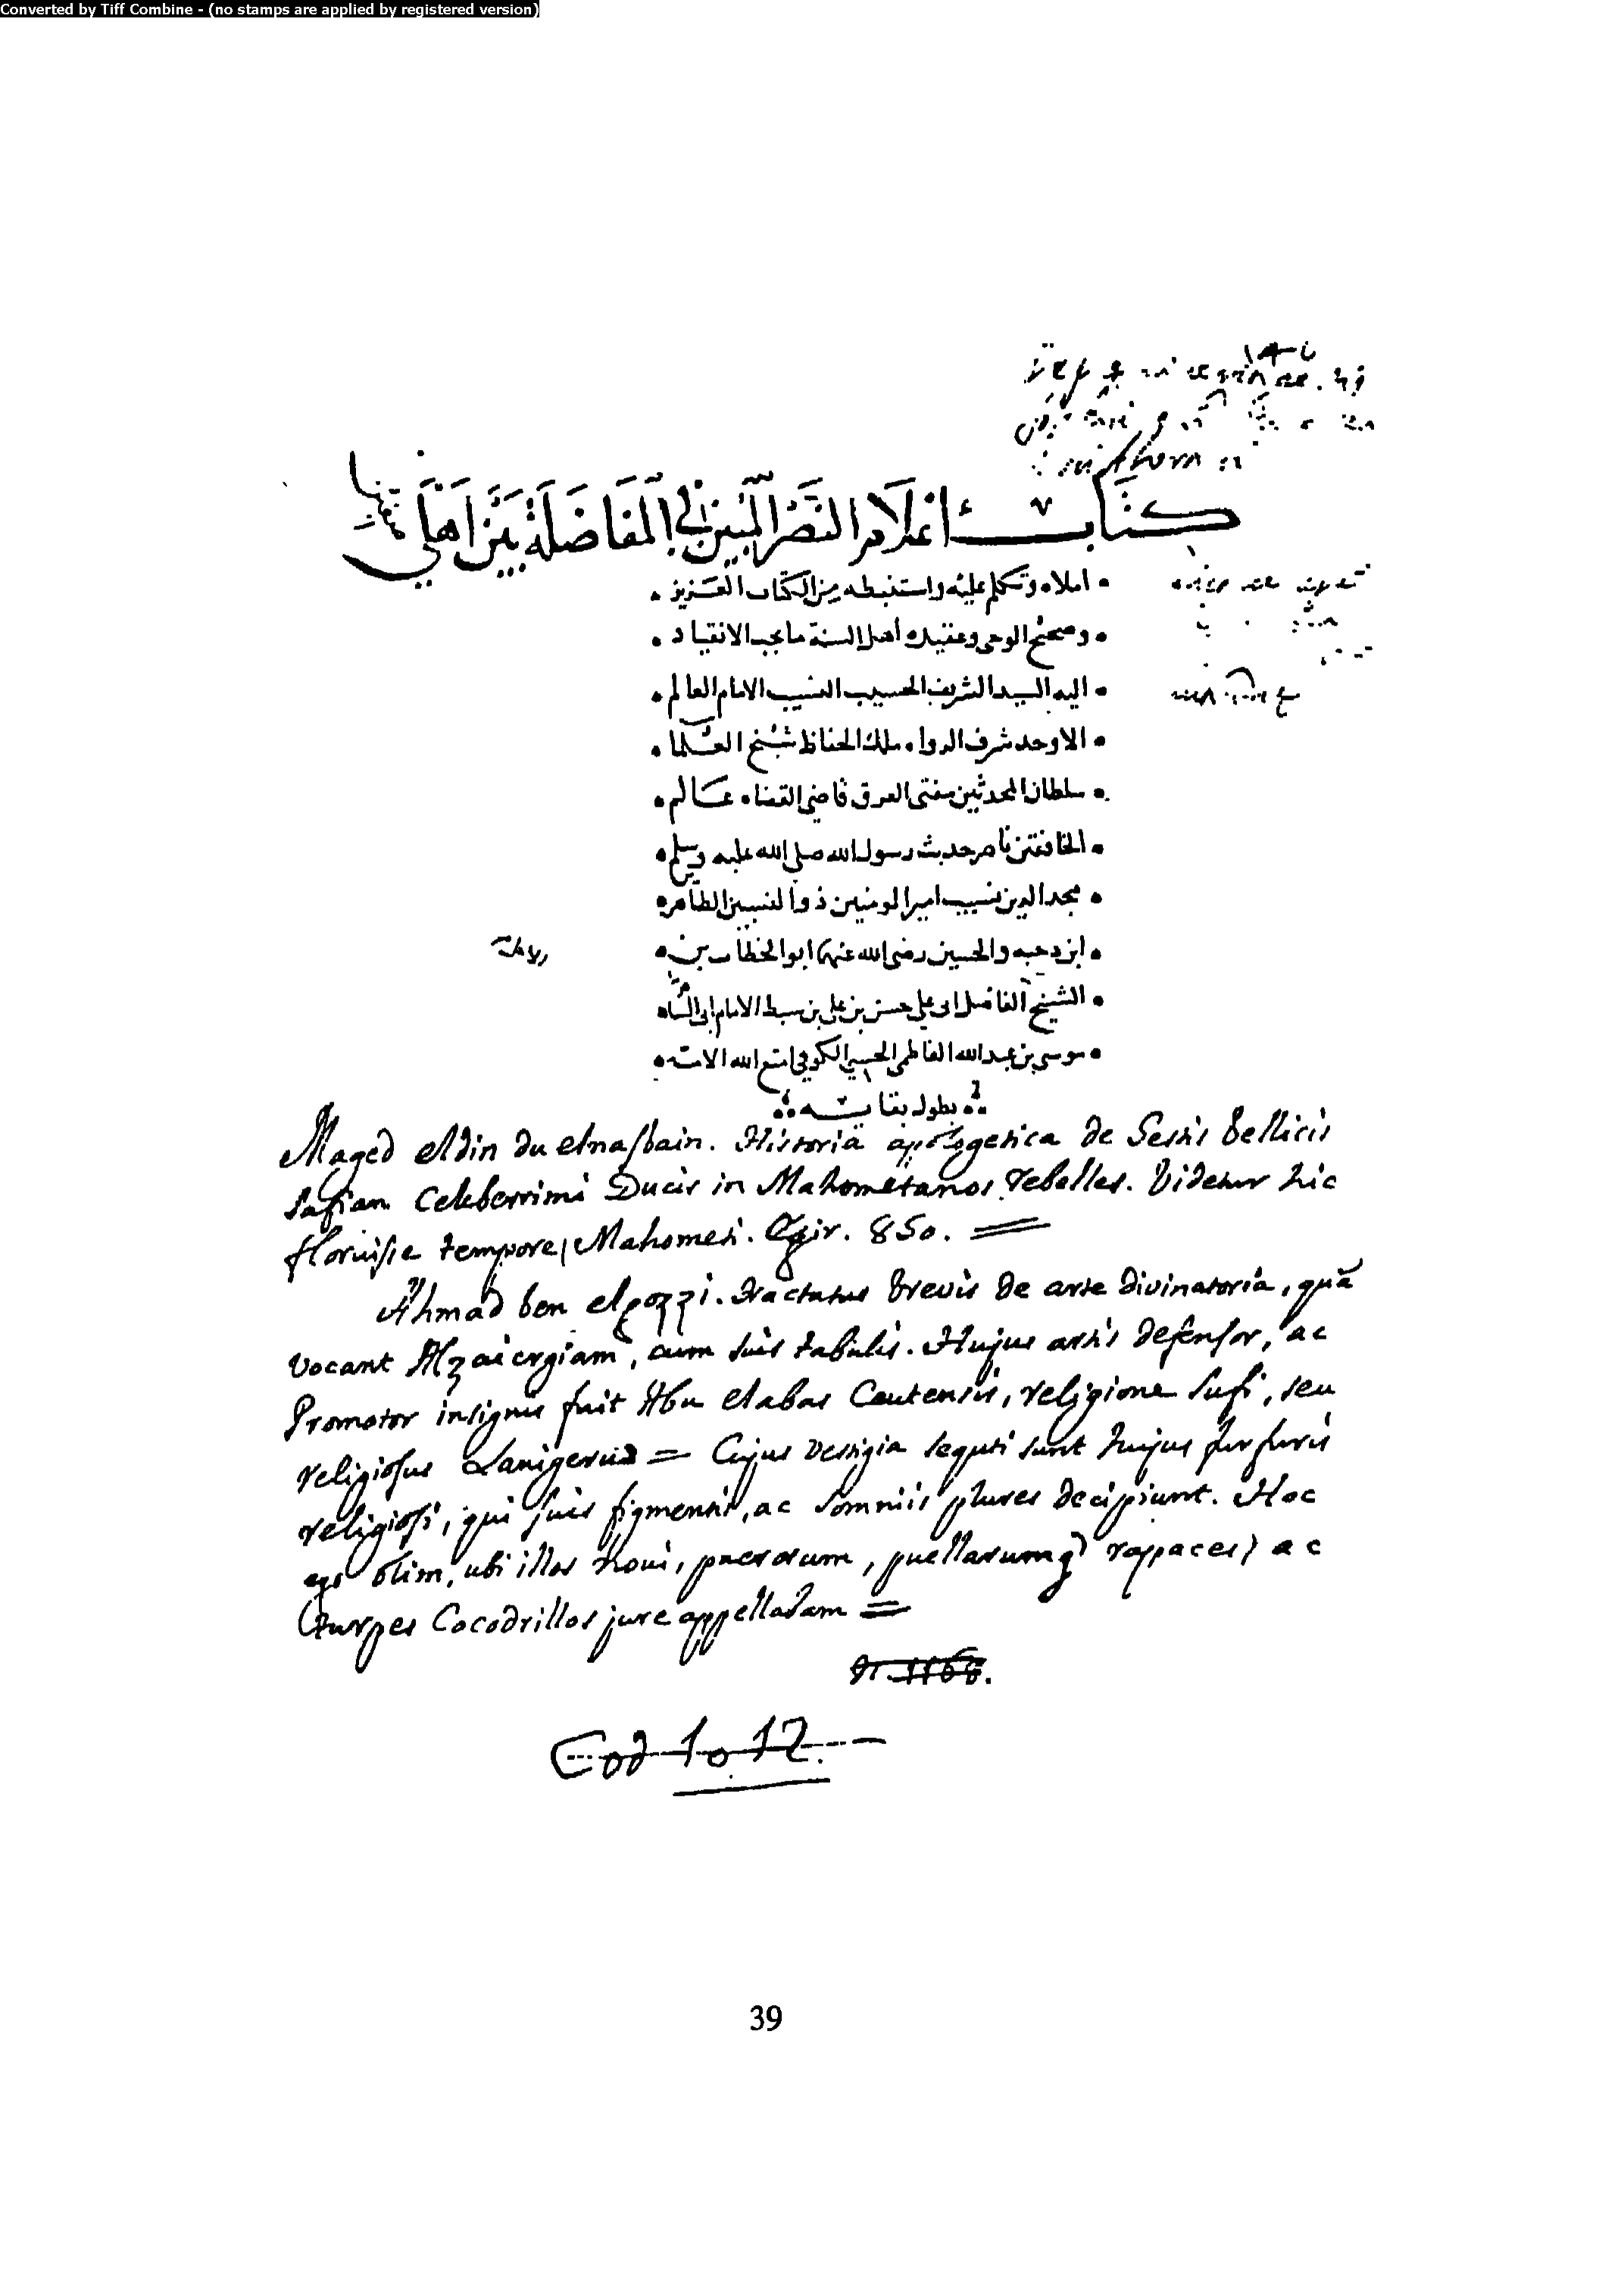 Converted by Tiff Combine - (no stamps are applied by registered version)
كتاب اعلام النصر المبين في المفاضلة بين اهلي
املاه وتكلم عليه واستنبطه من الكتاب العزيز
وصحيح الوحي وعقيدة أهل السنة ما يجب الانقياد
اليه السيد الشريف الحسيب النسيب الامام العالم
الاوحد شرف الرواه ملك الحفاظ شيخ العلما
سلطان المحدثين مفتى الفرق قاضي القضاه عالم
الخافقين ناصر حديث رسول الله صلى الله عليه وسلم
مجد الدين نسيب امير المومنين ذو النسبين الطاهره
ابن دحيه والحسين رضى الله عنهما ابو الخطاب بن
الشيخ الفاضل ابى علي حسن بن علي بن سبط الامام ابى البسام
موسى بن عبد الله الفاطمي الحسيني الكوفي امتع الله الامة
بطول بقايه
Maged eldin du elnasbain. Historia apologetica de Gestis bellicis
Safian Celeberrimi Ducis in Mahometanos rebelles. Videtur hic
floruisse tempore Mahometi. Egir. 850.
Ahmad ben elgozzi. Tractatus brevis de arte divinatoria, quã
vocant Alzaiergiam, cum suis tabulis. Hujus artis defensor, ac
Promotor insignis fuit Abu elabas Ceutensis, religione Sufi, seu
religiosus Lanigerus = Cujus vestigia sequti sunt hujus furfuris
religiosi, qui suis figmentis, ac somniis plures decipiunt. Hoc
ego olim, ubi illos novi, puerorum, puellarumq rapaces, ac
turpes Cocodrillos jure appellabam =
n. 1166.
Cod 1012.
39